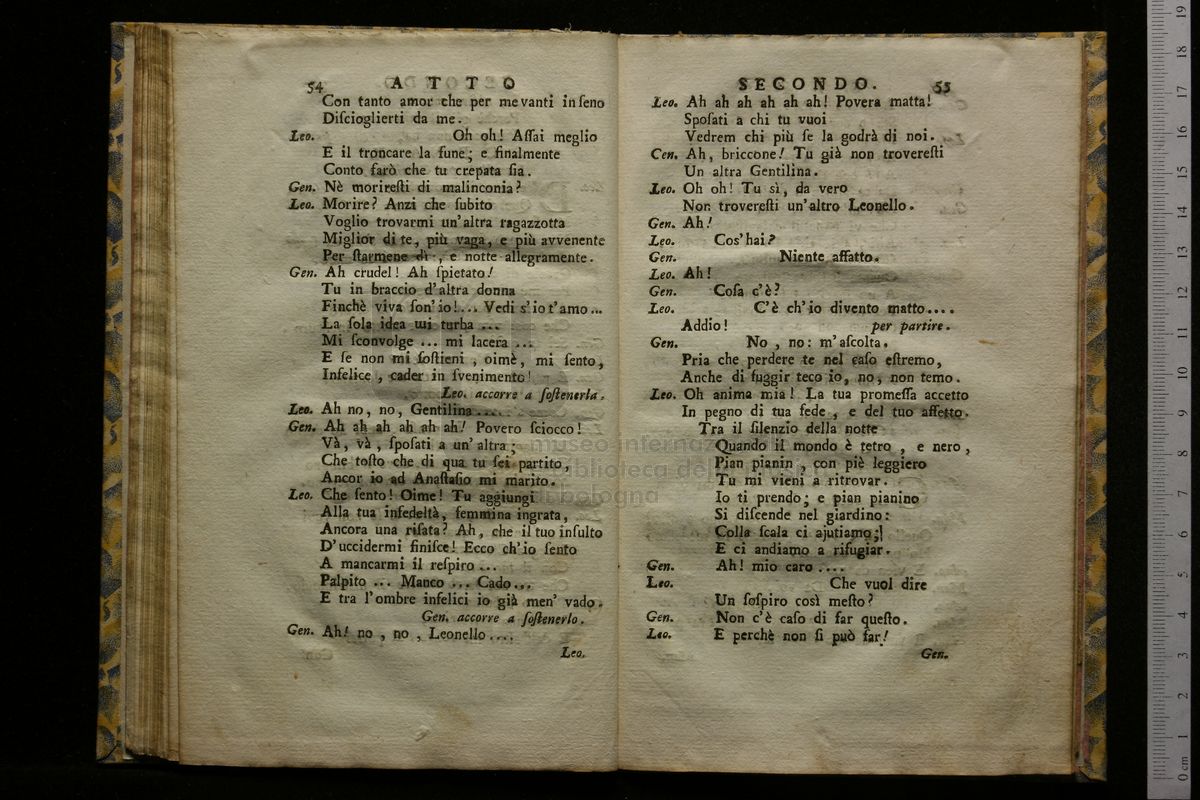 54 ATTO
Con tanto amor che per me vanti in ſeno
Diſcioglierti da me.
Leo. Oh oh! Aſſai meglio
E il troncare la fune; e finalmente
Conto farò che tu crepata ſia.
Gen. Nè moriresti di malinconia?
Leo. Morire? Anzi che ſubito
Voglio trovarmi un'altra ragazzotta
Miglior di te, più vaga, e più avvenente
Per ſtarmene dì, e notte allegramente.
Gen. Ah crudel! Ah ſpietato!
Tu in braccio d'altra donna
Finchè viva ſon'io!... Vedi s'io t'amo...
La ſola idea mi turba ...
Mi ſconvolge ... mi lacera ...
E ſe non mi ſoſtieni, oimè, mi ſento,
Infelice, cader in ſvenimento!
Leo. accorre a ſoſtenerla.
Leo. Ah no, no, Gentilina ....
Gen. Ah ah ah ah ah! Povero ſciocco!
Và, và, ſpoſati a un'altra;
Che toſto che di qua tu ſei partito,
Ancor io ad Anaſtaſio mi marito.
Leo. Che ſento! Oime! Tu aggiungi
Alla tua infedeltà, femmina ingrata,
Ancora una riſata? Ah, che il tuo inſulto
D'uccidermi finiſce! Ecco ch'io ſento
A mancarmi il reſpiro ...
Palpito ... Manco ... Cado ...
E tra l'ombre infelici io già men' vado.
Gen. accorre a ſoſtenerlo.
Gen. Ah! no, no, Leonello ....
Leo.
SECONDO. 55
Leo. Ah ah ah ah ah ah! Povera matta!
Spoſati a chi tu vuoi
Vedrem chi più ſe la godrà di noi.
Cen. Ah, briccone! Tu già non troveresti
Un altra Gentilina.
Leo. Oh oh! Tu sì, da vero
Non troveresti un'altro Leonello.
Gen. Ah!
Leo. Cos'hai?
Gen. Niente affatto.
Leo. Ah!
Gen. Coſa c'è?
Leo. C'è ch'io divento matto....
Addio! per partire.
Gen. No, no: m'aſcolta.
Pria che perdere te nel caſo eſtremo,
Anche di fuggir teco io, no, non temo.
Leo. Oh anima mia! La tua promeſſa accetto
In pegno di tua fede, e del tuo affetto.
Tra il ſilenzio della notte
Quando il mondo è tetro, e nero,
Pian pianin, con piè leggiero
Tu mi vieni a ritrovar.
Io ti prendo; e pian pianino
Si diſcende nel giardino:
Colla ſcala ci ajutiamo;
E ci andiamo a rifugiar.
Gen. Ah! mio caro ....
Leo. Che vuol dire
Un ſoſpiro così meſto?
Gen. Non c'è caſo di far queſto.
Leo. E perchè non ſi può far!
Gen.